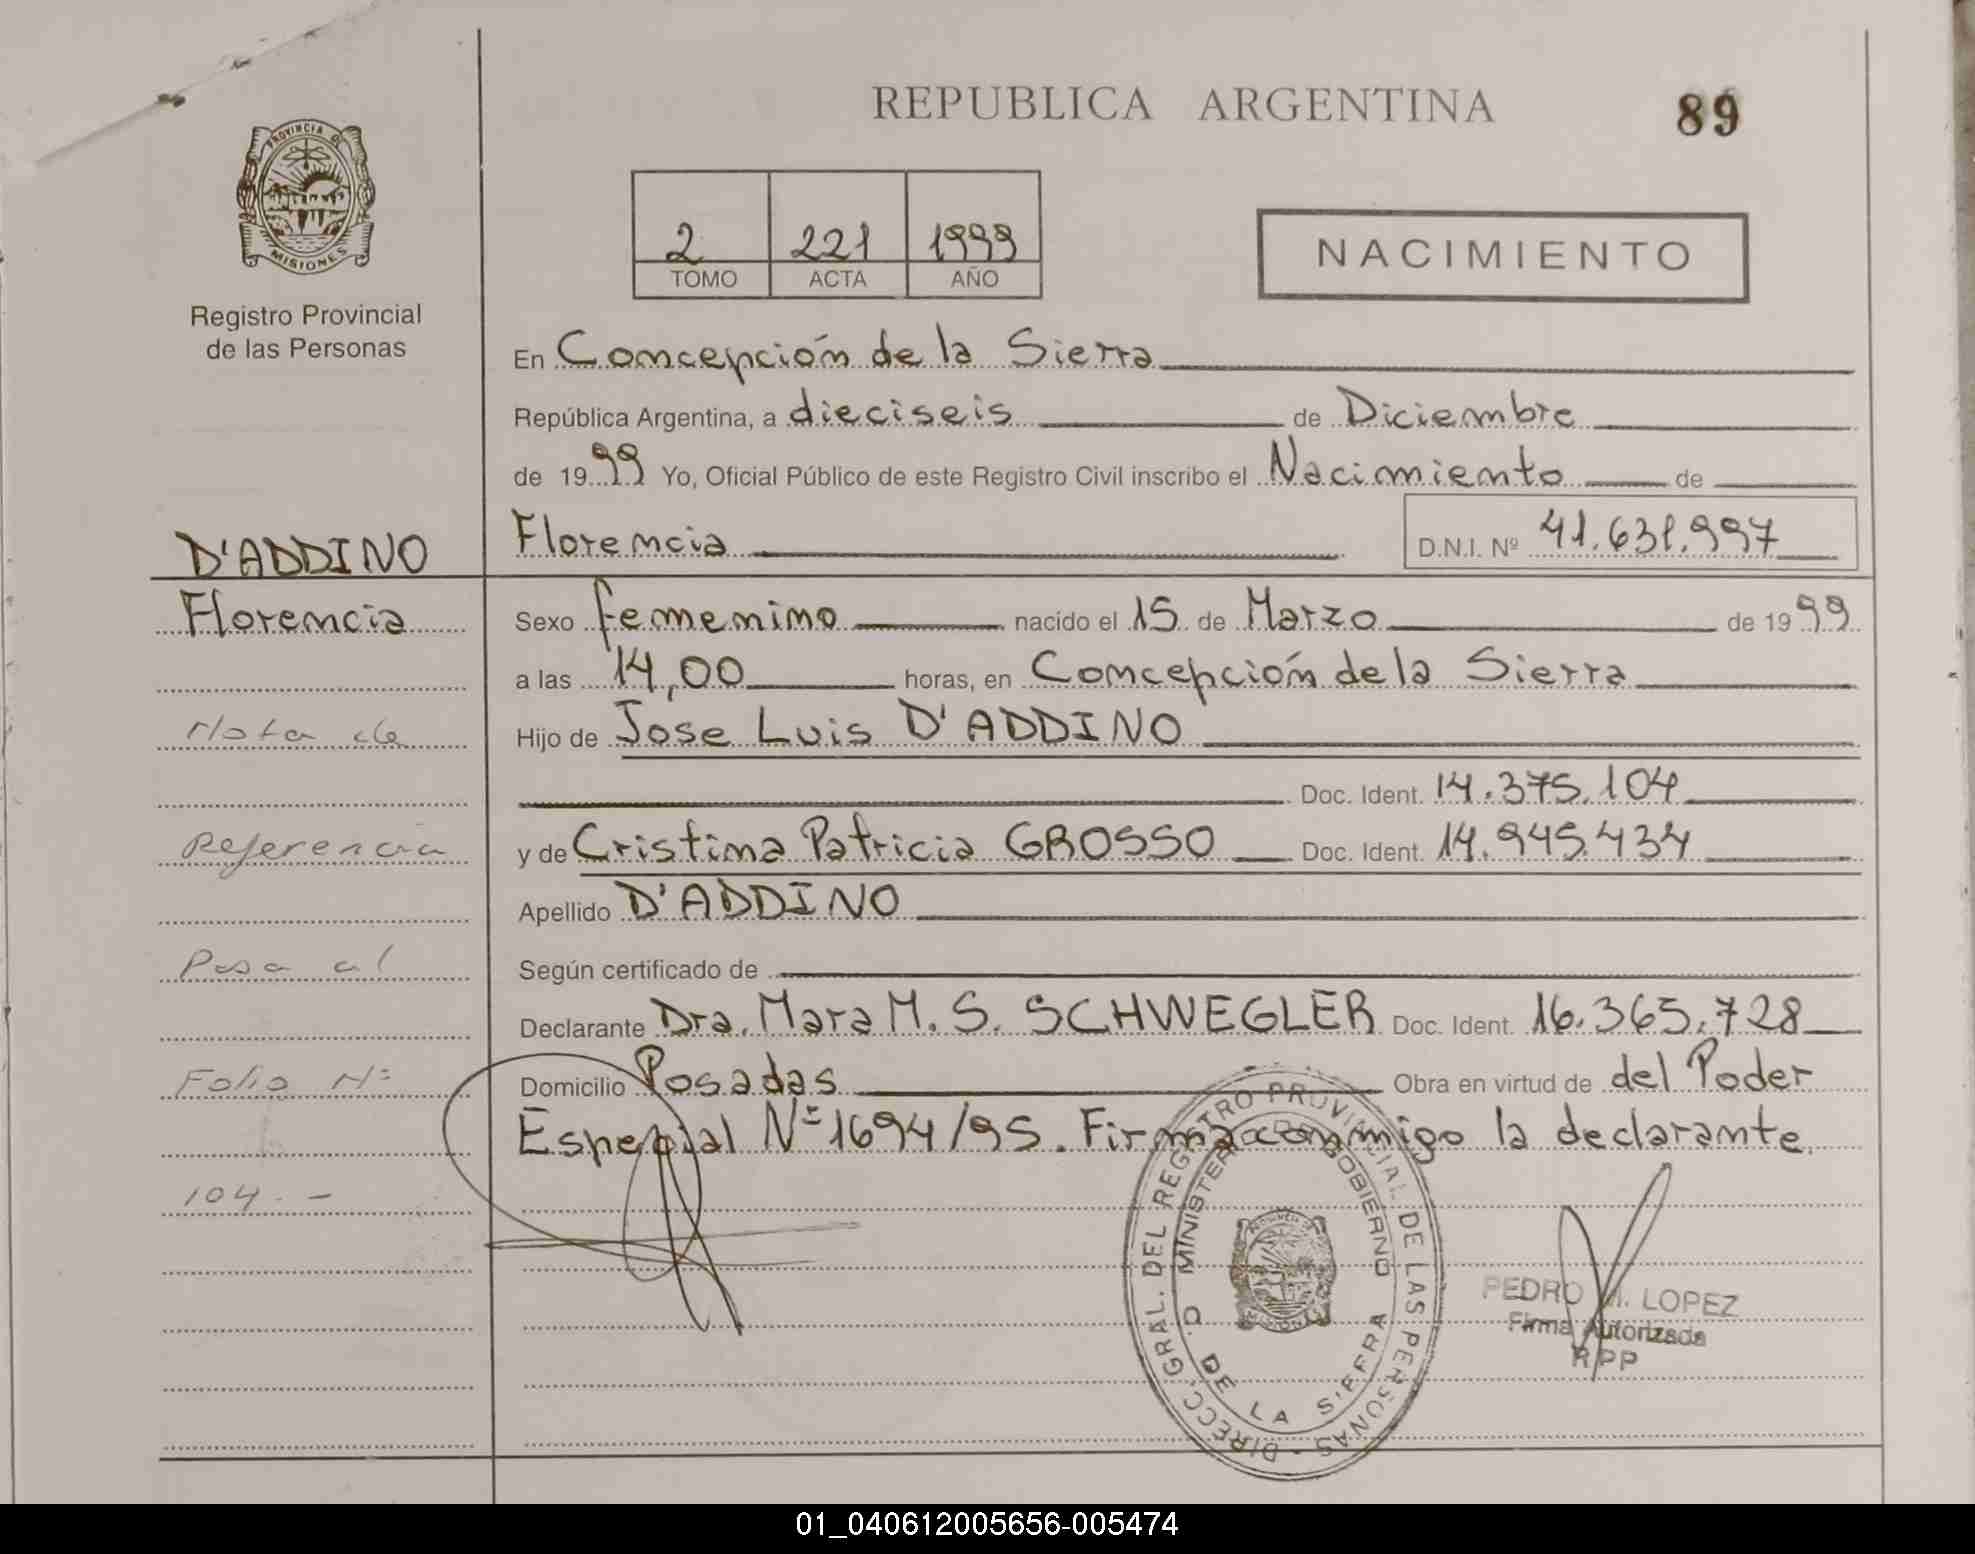 REPUBLICA ARGENTINA
89
PROVINCIA DE
MISIONES
Registro Provincial
de las Personas
2 221 1999
TOMO ACTA AÑO
NACIMIENTO
En Concepción de la Sierra
República Argentina, a dieciseis de Diciembre
de 1999 Yo, Oficial Público de este Registro Civil inscribo el Nacimiento de
Florencia D.N.I. Nº 41.631.997
D'ADDINO
Florencia
Nota de
Referencia
Pasa al
Folio Nº
104.-
Sexo femenino nacido el 15 de Marzo de 1999
a las 14,00 horas, en Concepción de la Sierra
Hijo de Jose Luis D'ADDINO
Doc. Ident. 14.375.104
y de Cristina Patricia GROSSO Doc. Ident. 14.945.434
Apellido D'ADDINO
Según certificado de
Declarante Dra. Mara M. S. SCHWEGLER Doc. Ident. 16.365.728
Domicilio Posadas Obra en virtud de del Poder
Especial Nº 1694/95. Firma conmigo la declarante.
DIRECC. GRAL. DEL REGISTRO PROVINCIAL DE LAS PERSONAS
MINISTER GOBIERNO
DE LA SIERRA
PEDRO M. LOPEZ
Firma Autorizada
RPP
01_040612005656-005474